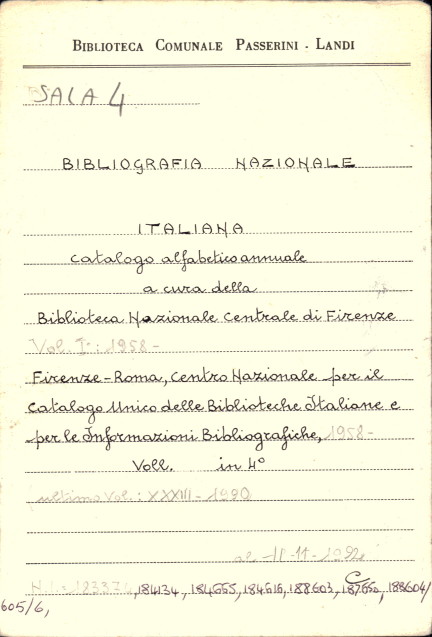 BIBLIOTECA COMUNALE PASSERINI - LANDI
SALA 4
BIBLIOGRAFIA NAZIONALE
ITALIANA
catalogo alfabetico annuale
a cura della
Biblioteca Nazionale Centrale di Firenze
Vol. I°: 1958-
Firenze-Roma, Centro Nazionale per il
Catalogo Unico delle Biblioteche Italiane e
per le Informazioni Bibliografiche, 1958-
Voll. in 4°
ultimo Vol: XXXIII - 1990
al 11-11-1992
184134, 184555, 184616, 188603, 188604/
605/6,